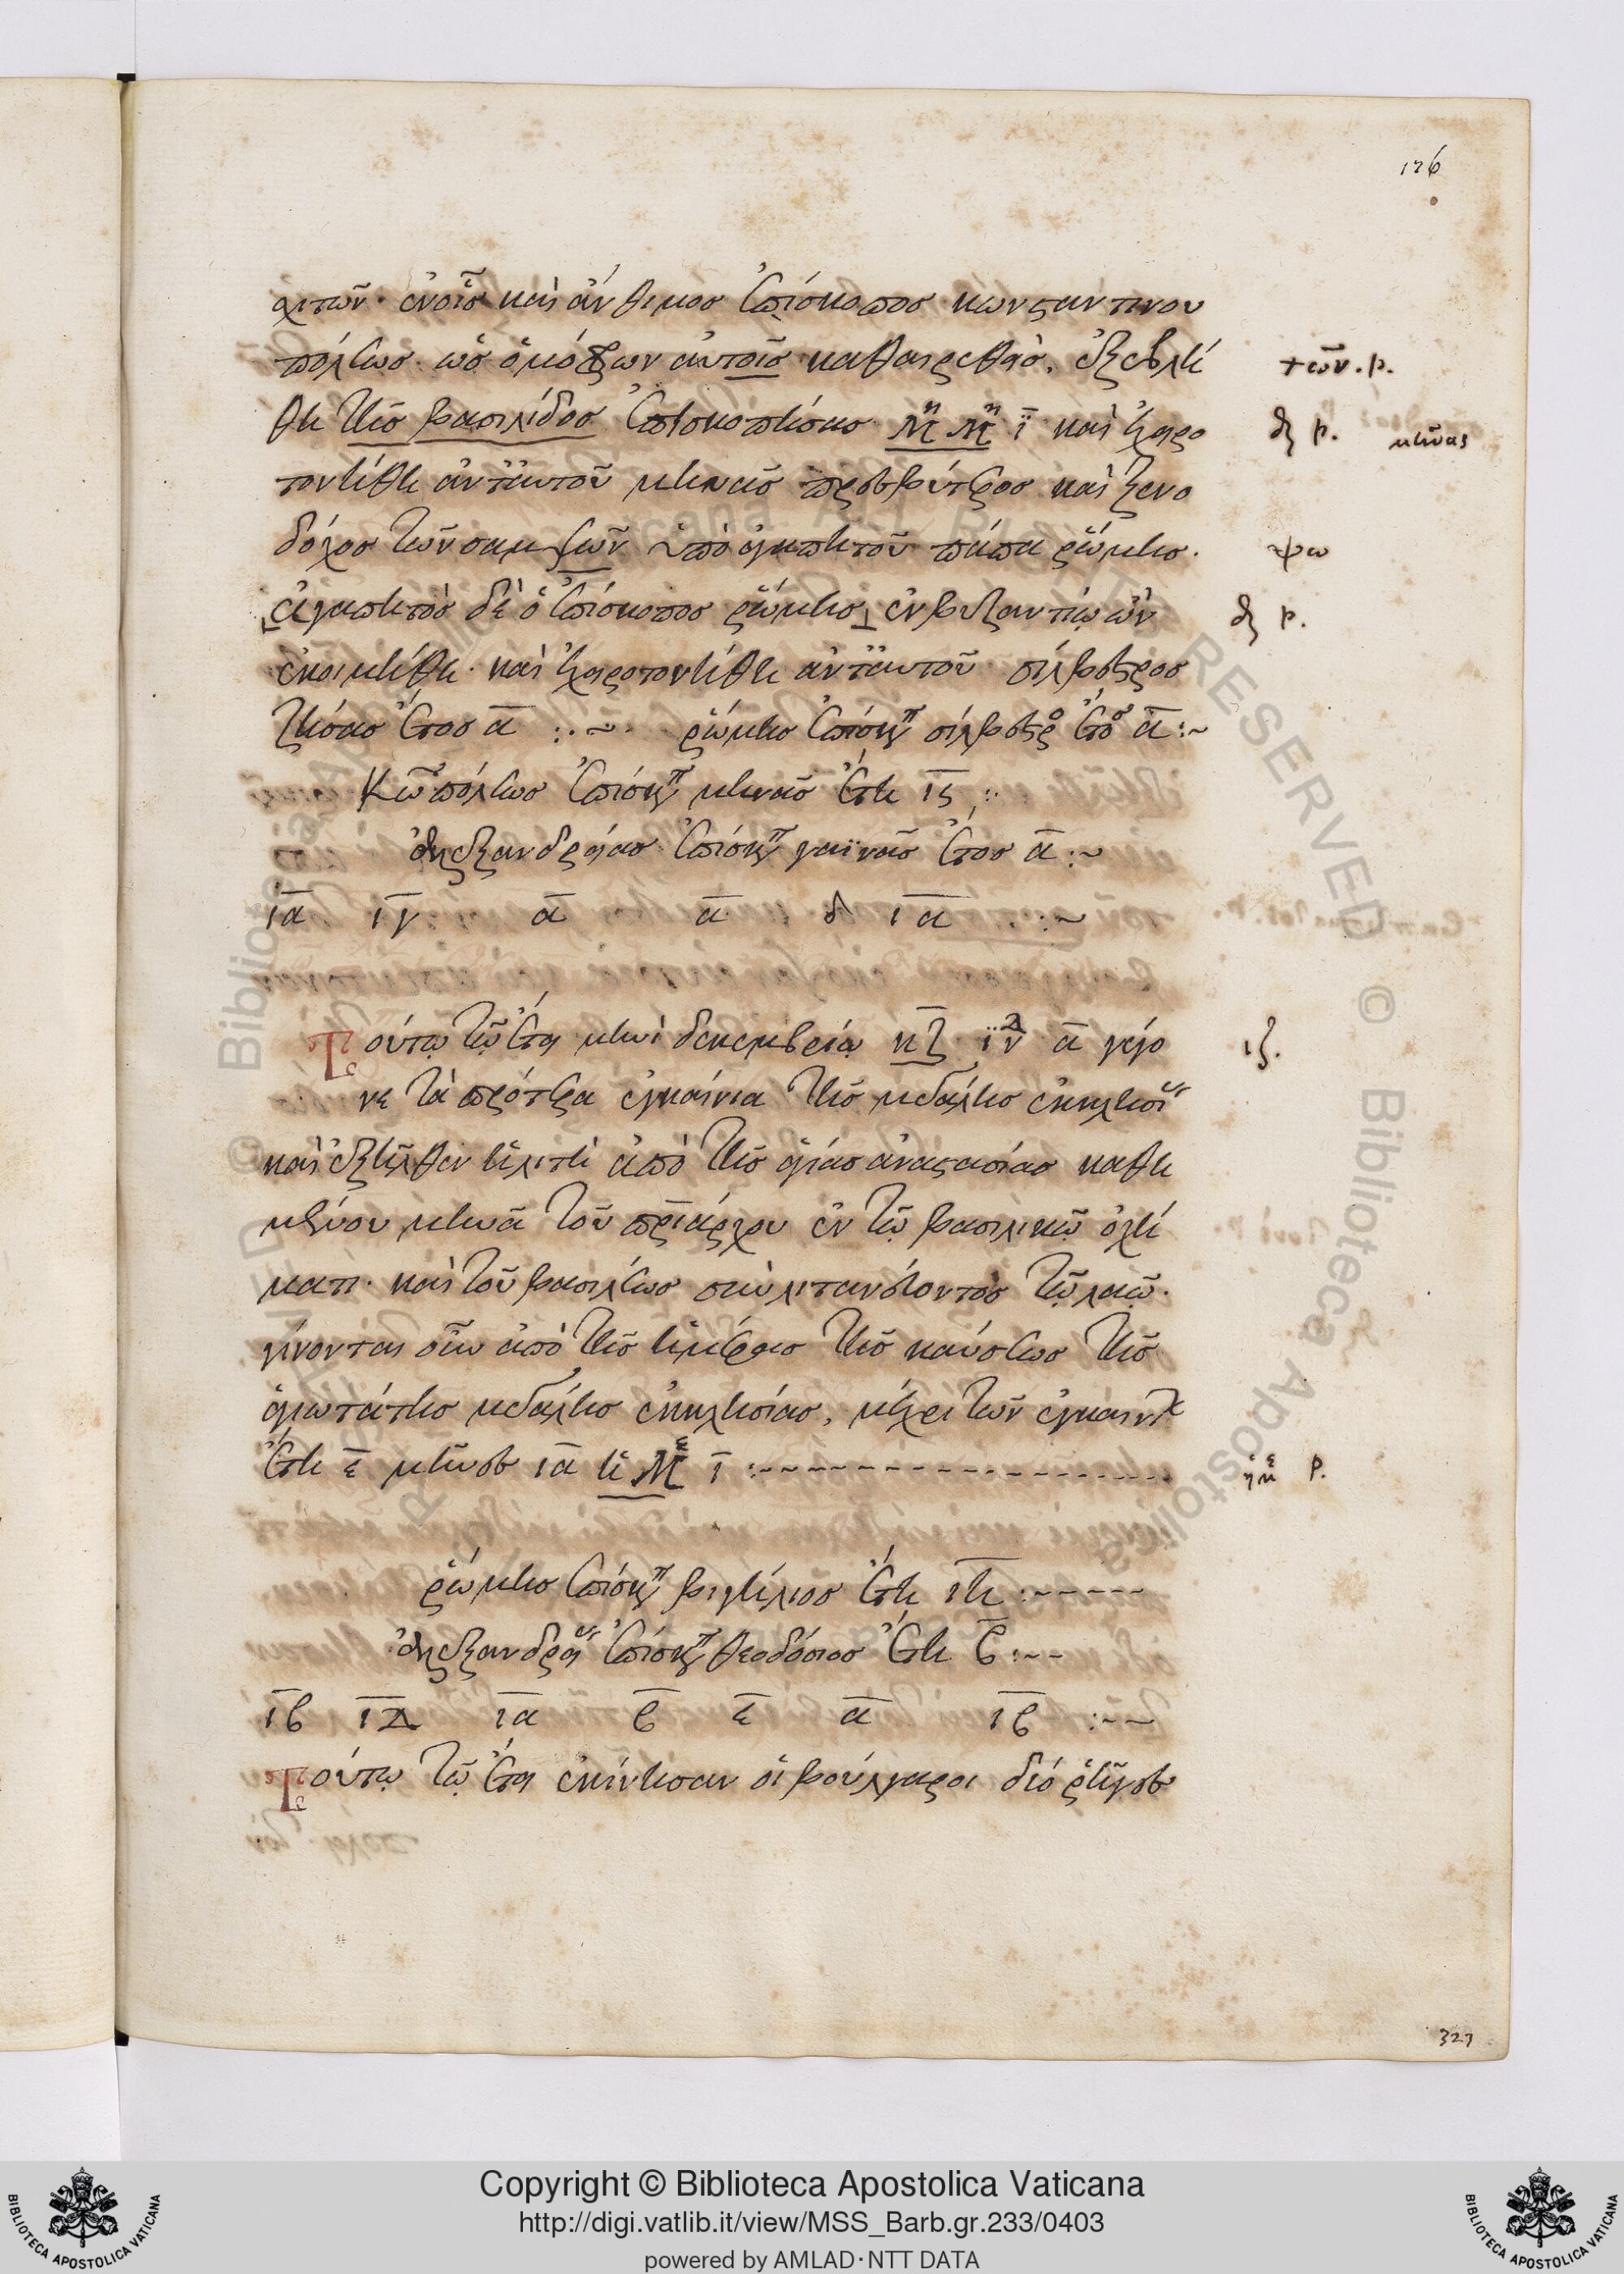 176
χιτῶν· ἐν οἷς καὶ ἄνθιμος ἐπίσκοπος κωνσταντινου
πόλεως. ὡς ὁμόφρων αὐτοῖς καθαιρεθεὶς, ἐξεβλή
+ῶν. β.
θη τῆς βασιλίδος ἐπισκοπήσας μη̅ μη̅ ι̅ καὶ ἐχειρο
β. μῆνας
τονήθη ἀντ' αὐτοῦ μηνᾶς πρεσβύτερος καὶ ξενο
δόχος τῶν σαμψῶν ὑπὸ ἀγαπητοῦ πάπα ῥώμης.
ψω
ἀγαπητὸς δὲ ὁ ἐπίσκοπος ῥώμης ἐν βυζαντίῳ ὢν
β.
ἐκοιμήθη· καὶ ἐχειροτονήθη ἀντ' αὐτοῦ σίλβεστρος
ζήσας ἔτος α̅ :~ ῥώμης ἐπίσκοπ σίλβεστρο ἔτο α̅ :~
Κω̅πόλεως ἐπίσκοπ μηνᾶς ἔτη ις
ἀλεξανδρείας ἐπίσκοπ γαϊνᾶς ἔτος α̅ :~
ι̅α̅ ι̅γ̅ α̅ α̅ δ ι̅α̅ :~
Τούτῳ τῷ ἔτει μηνὶ δεκεμβρίῳ κζ ἰν̅δ α̅ γέγο
ιζ.
νε τὰ πρότερα ἐγκαίνια τῆς μεγάλης ἐκκλησί
καὶ ἐξῆλθεν ἡ λιτὴ ἀπὸ τῆς ἁγίας ἀναστασίας καθη
μένου μηνᾶ τοῦ πριάρχου ἐν τῷ βασιλικῷ ὀχή
ματι· καὶ τοῦ βασιλέως συλλιτανεύοντος τῷ λαῷ.
γίνονται οὖν ἀπὸ τῆς ἡμέρας τῆς καύσεως τῆς
ἁγιωτάτης μεγάλης ἐκκλησίας, μέχρι τῶν ἐγκαινί
ἔτη ε̅ μῆνες ι̅α̅ ἡμε ι̅ :~
ἡμε β.
ῥώμης ἐπίσκοπ βιγήλιος ἔτη ι̅η̅ :~
ἀλεξανδρεί ἐπίσκοπ θεοδόσιος ἔτη β̅ :~
ι̅β̅ ι̅δ̅ ι̅α̅ β̅ ε̅ α̅ ι̅β̅ :~
Τούτῳ τῷ ἔτει ἐκίνησαν οἱ βούλγαροι δύο ῥῆγες
327
Copyright © Biblioteca Apostolica Vaticana
http://digi.vatlib.it/view/MSS_Barb.gr.233/0403
powered by AMLAD·NTT DATA
BIBLIOTECA APOSTOLICA VATICANA
BIBLIOTECA APOSTOLICA VATICANA